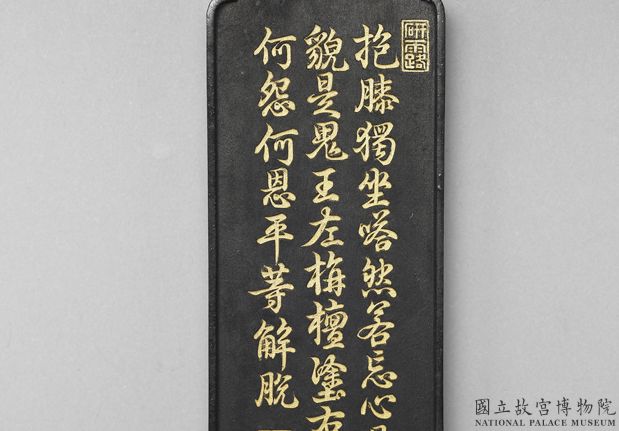 研露
抱膝獨坐嗒然若忘心
貌是鬼王左栴檀塗
何怨何恩平等解脫
國立故宮博物院
NATIONAL PALACE MUSEUM